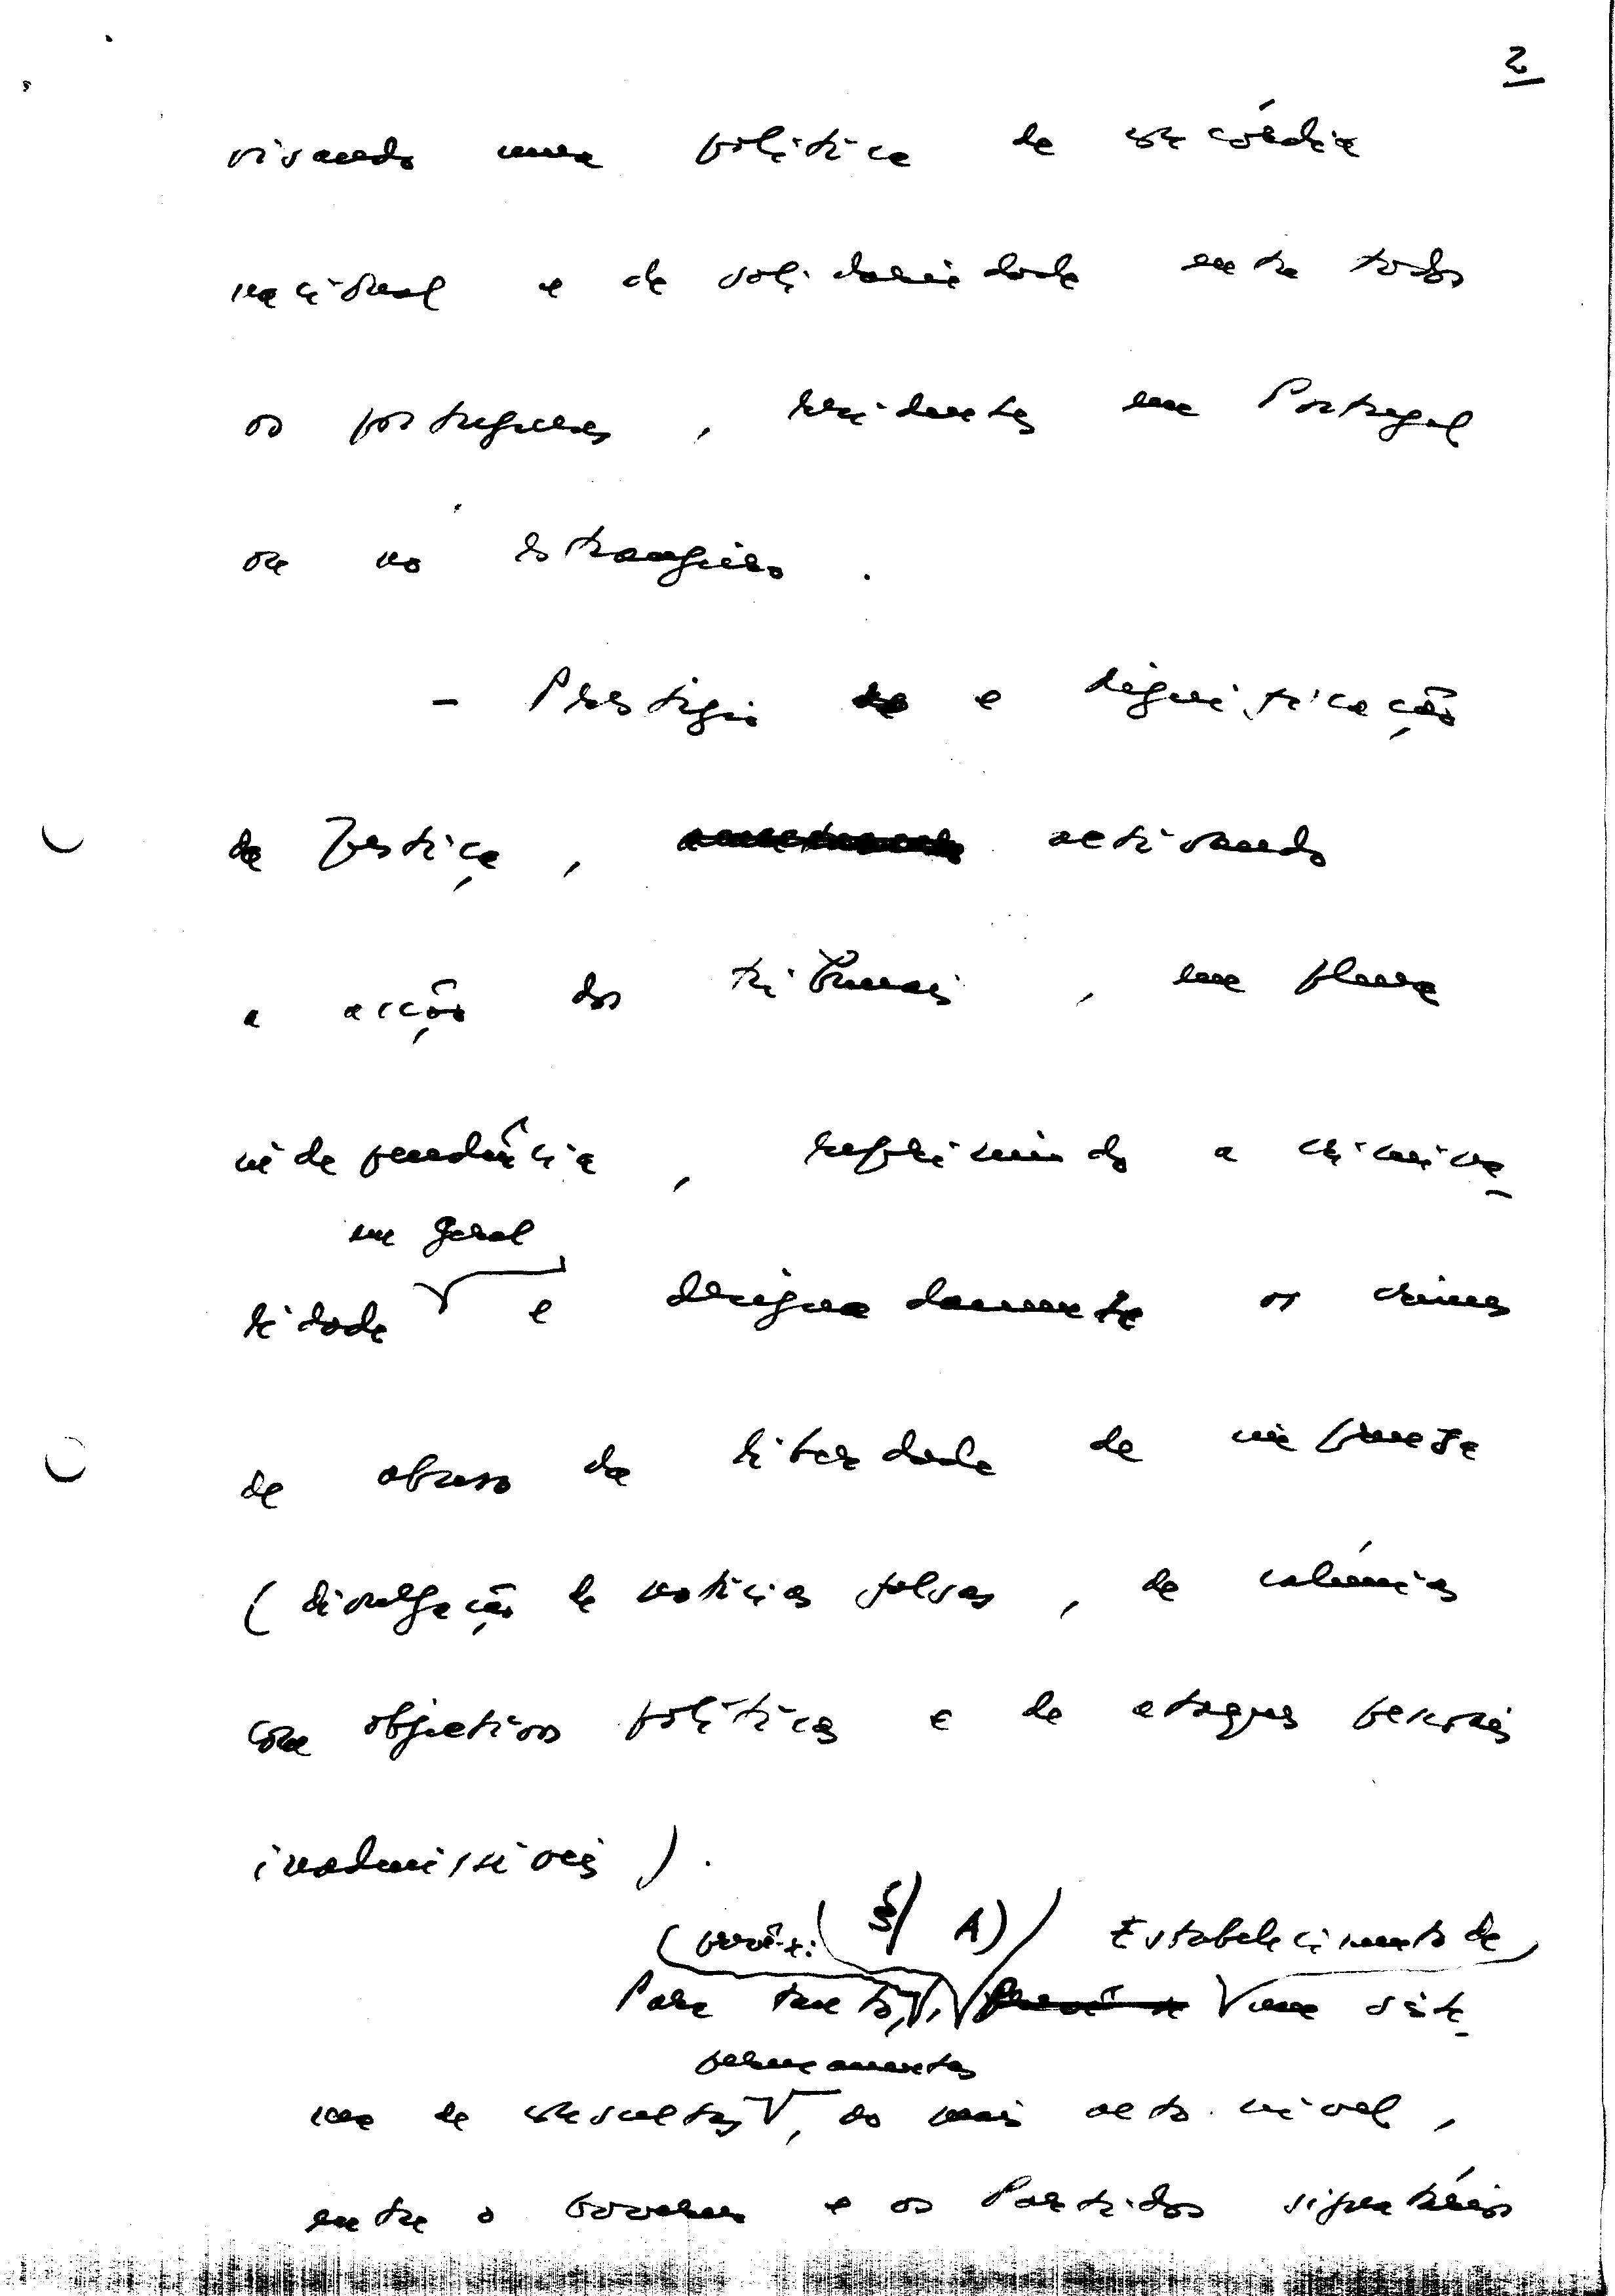 2
visando uma política de concórdia
nacional e de solidariedade entre todos
os portugueses, residentes em Portugal
ou no estrangeiro.
- Prestígio e dignificação
da Justiça, activando
a acção dos tribunais, em plena
independência, reprimindo a crimina-
em geral
lidade e designadamente os crimes
de abuso da liberdade de imprensa
(divulgação de notícias falsas, de calúnias
com objectivos políticos e de ataques pessoais
inadmissíveis).
(prevê-se: (§/ A) / Estabelecimento de
Para tanto, prevê-se um siste-
permanentes
ma de consultas, ao mais alto nível,
entre o Governo e os Partidos signatários